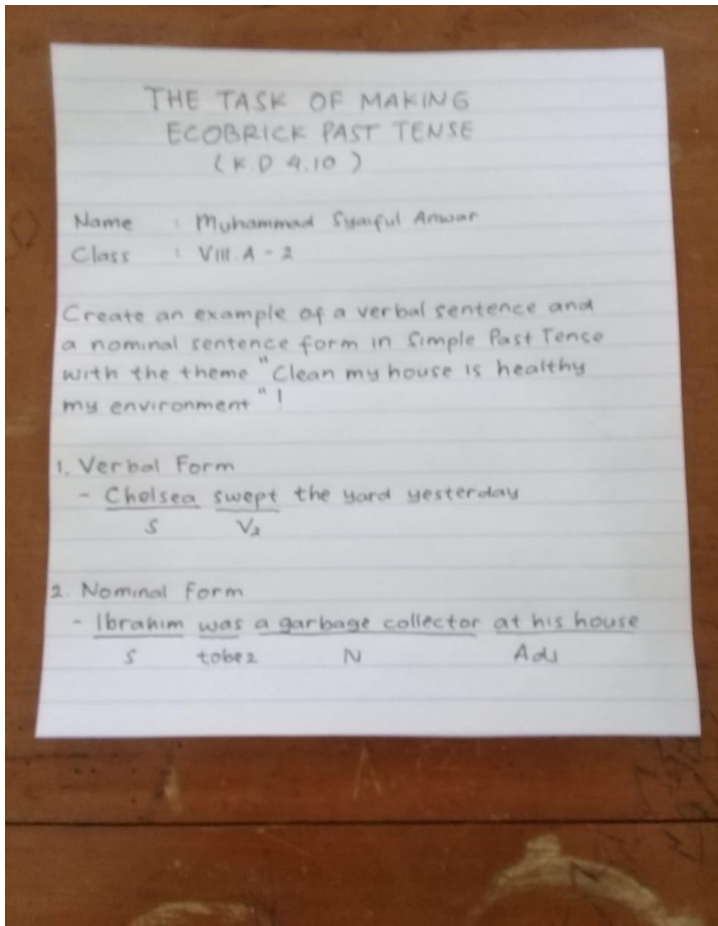 THE TASK OF MAKING
ECOBRICK PAST TENSE
(KD 4.10)
Name : Muhammad Syaiful Anwar
Class : VIII.A-2
Create an example of a verbal sentence and
a nominal sentence form in Simple Past Tence
with the theme "Clean my house is healthy
my environment"!
1. Verbal Form
- Chelsea swept the yard yesterday
S V2
2. Nominal Form
- Ibrahim was a garbage collector at his house
S tobe2 N Adj